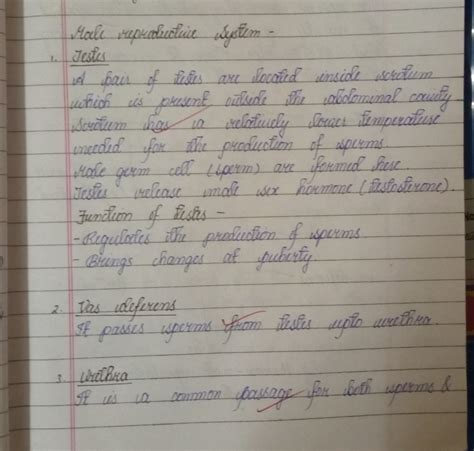 Male reproductive System -
1. Testes
A pair of testes are located inside scrotum
which is present outside the abdominal cavity
Scrotum has a relatively lower temperature
needed for the production of sperms.
Male germ cell (sperm) are formed here.
Testes release male sex hormone (testosterone).
Function of testes -
- Regulates the production of sperms
- Brings changes at puberty
2. Vas deferens
It passes sperms from testes upto urethra
3. Urethra
It is a common passage for both sperms &